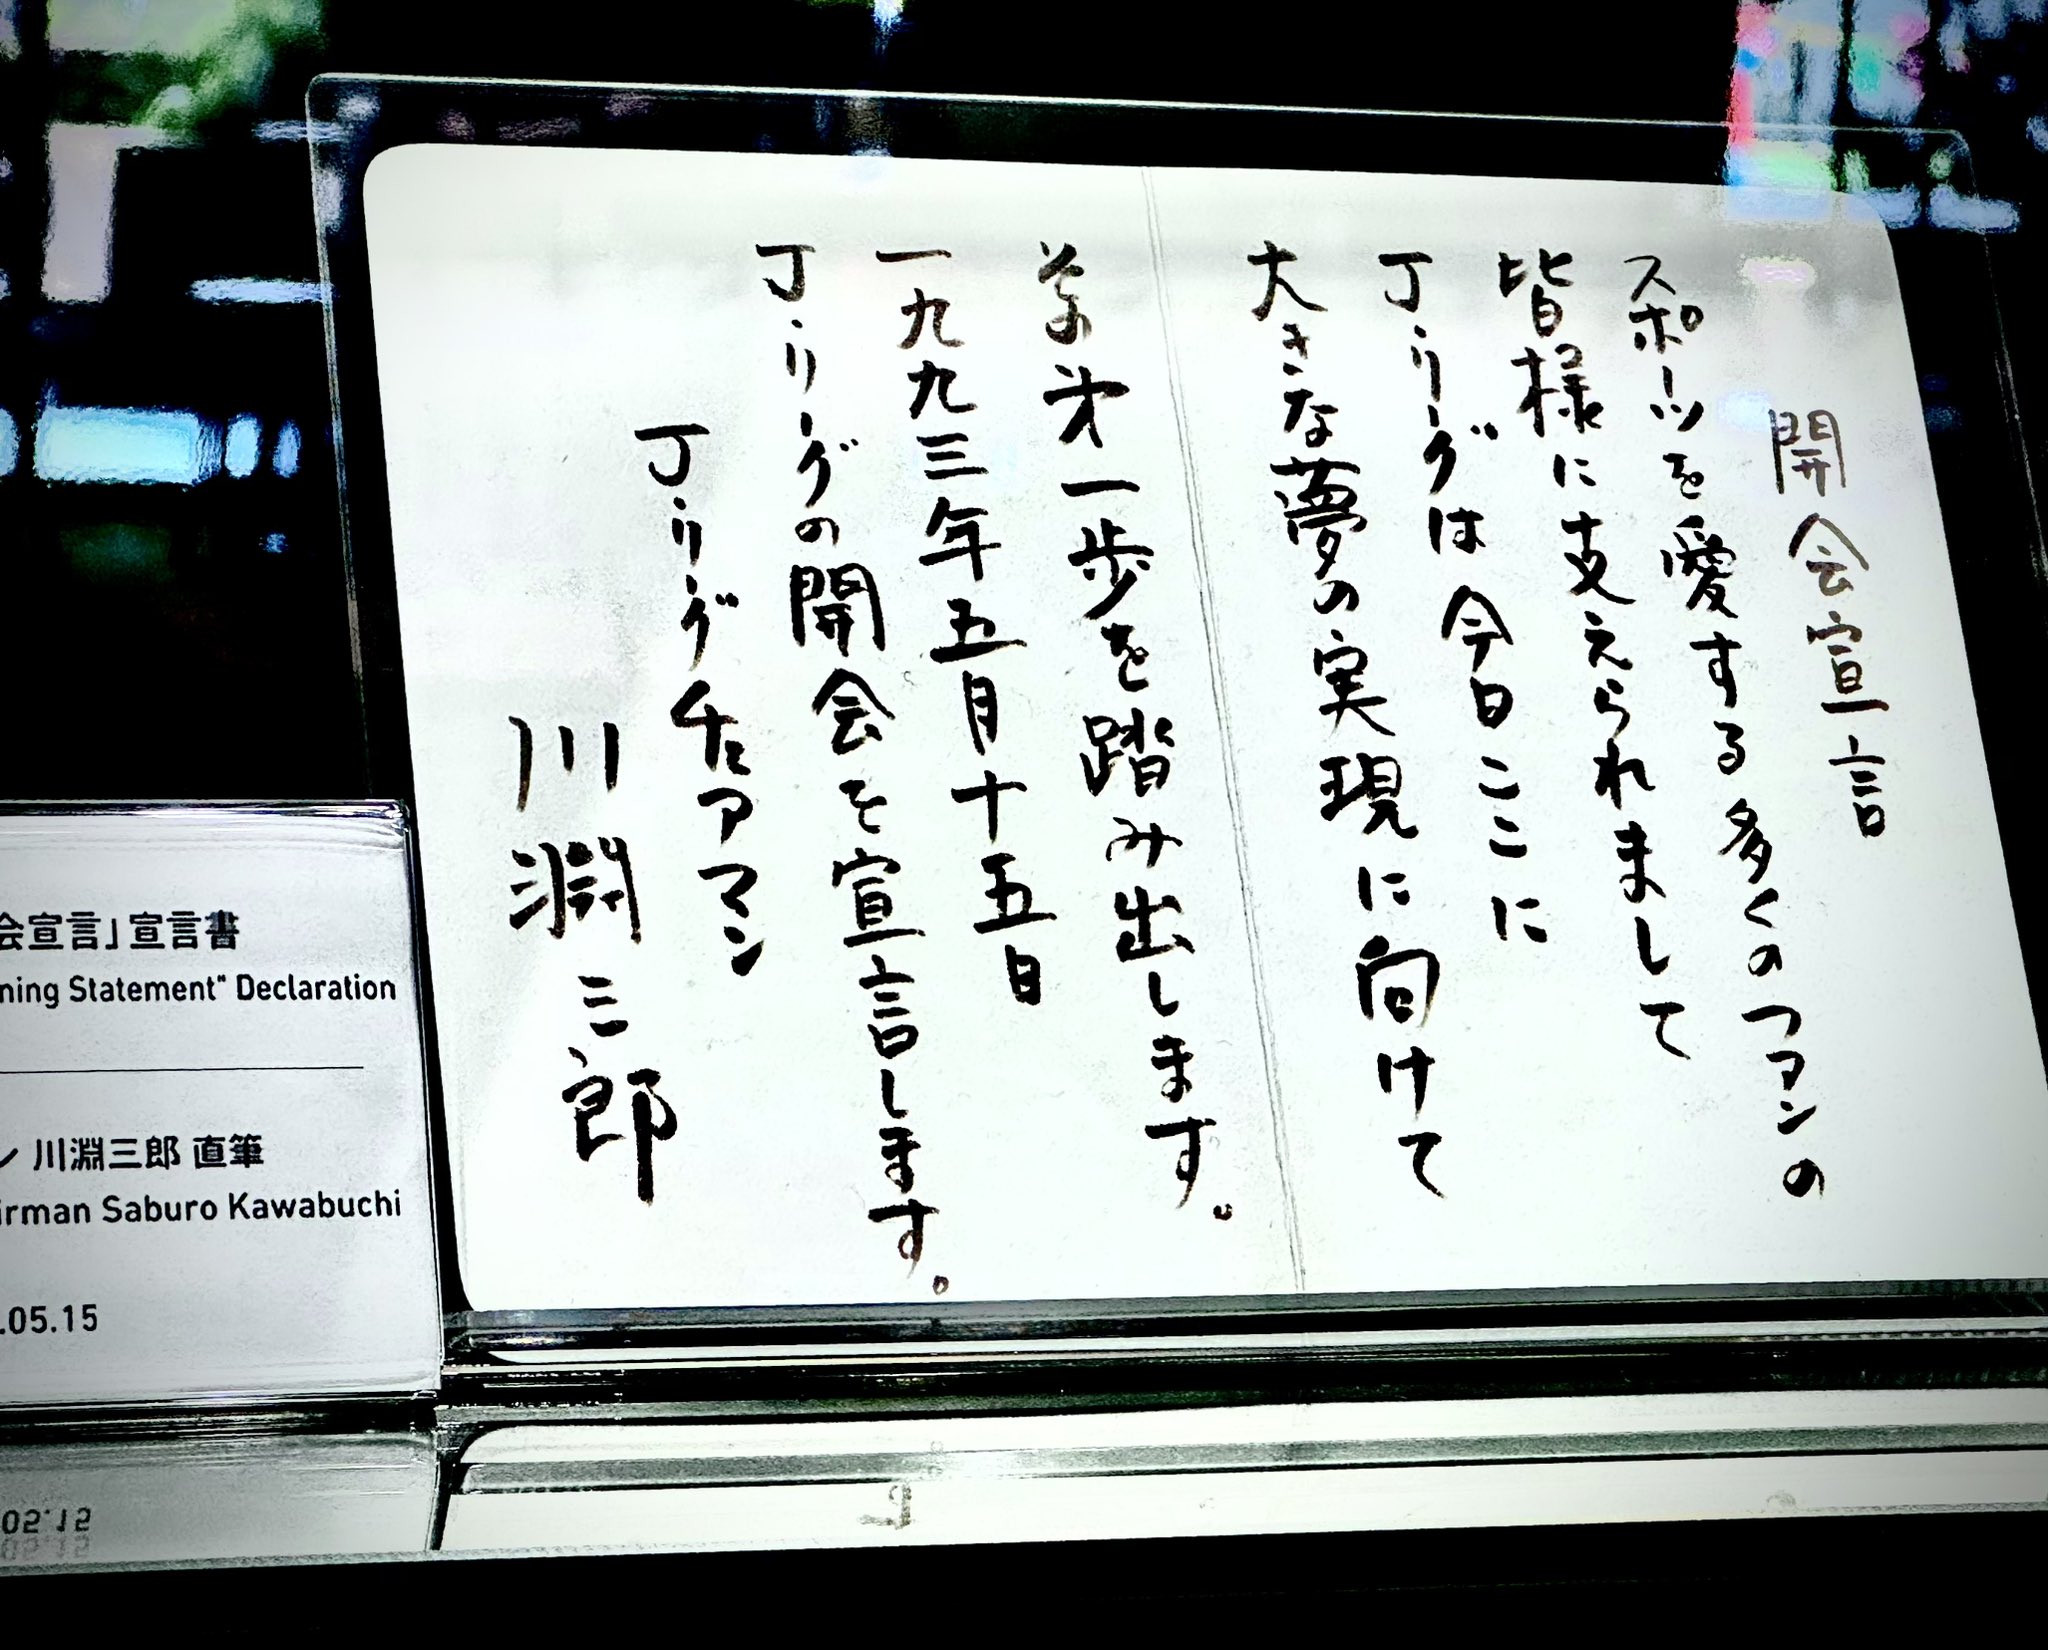 開会宣言
スポーツを愛する多くのファンの
皆様に支えられまして
Jリーグは今日ここに
大きな夢の実現に向けて
その第一歩を踏み出します。
一九九三年五月十五日
Jリーグの開会を宣言します。
Jリーグチェアマン
川淵三郎
会宣言」宣言書
ning Statement" Declaration
ン 川淵三郎 直筆
irman Saburo Kawabuchi
.05.15